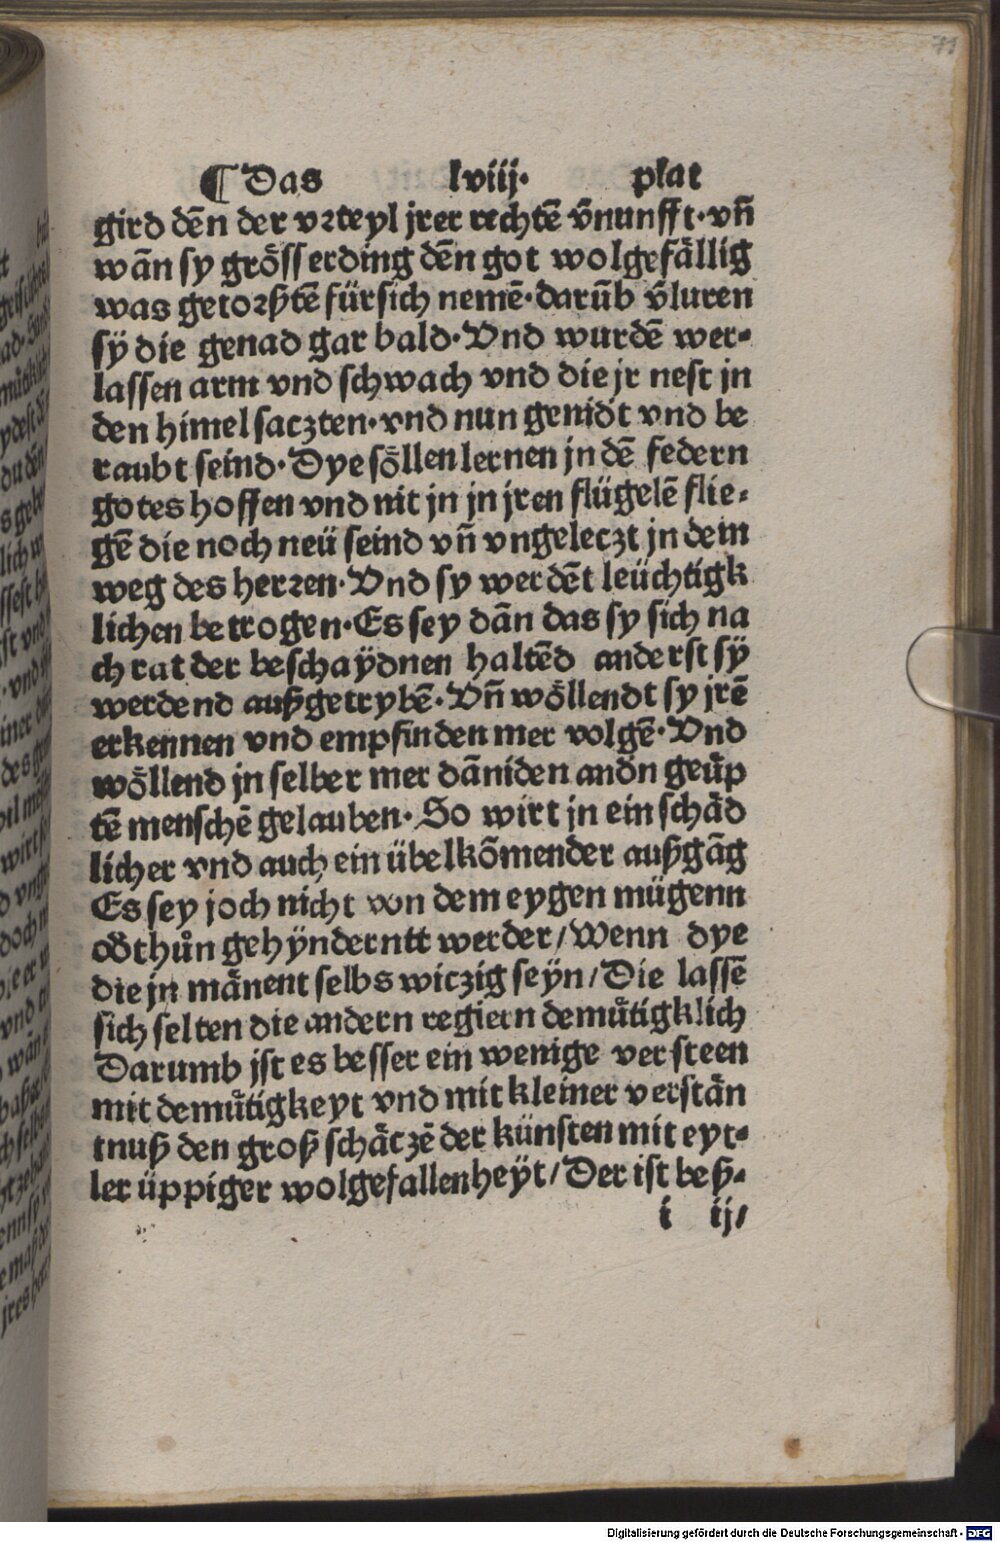 71
¶ Das lviij. plat
gird dēn der vꝛteyl jrer rechtē v̄nunfft·vn̄
wān sy grösserding dēn got wolgefällig
was getoꝛßtē fürsich nemē·darūb v̄luren
sÿ die genad gar bald·Vnd wurdē wer⸗
lassen arm vnd schwach vnd die jr nest jn
den himel saczten·vnd nun genidt vnd be
raubt seind·Dye söllen lernen jn dē federn
gotes hoffen vnd nit jn jn jren flügelē flie⸗
gē die noch neü seind vn̄ vngeleczt jn dem
weg des herꝛen·Vnd sy werdēt leüchtigk
lichen betrogen·Es sey dān das sy sich na
ch rat der beschaÿdnen haltēd anderst sÿ
werdend außgetrybē·Vn̄ wöllendt sy jrē
erkennen vnd empfinden mer volgē·Vnd
wöllend jn selber mer dāniden andn geüp
tē menschē gelauben·So wirt jn ein schäd
licher vnd auch ein übelkōmender außgāg
Es sey joch nicht von dem eygen mügenn
od thůn gehÿnderntt werder/Wenn dye
die jn mänent selbs wiczig seÿn/Die lassē
sich selten die andern regiern demütigklich
Darumb jst es besser ein wenige versteen
mit demütigkeyt vnd mit kleiner verstän
tnuß den groß schäczē der künsten mit eyt⸗
ler üppiger wolgefallenheÿt/Der ist beß⸗
i ij/
Digitalisierung gefördert durch die Deutsche Forschungsgemeinschaft - DFG